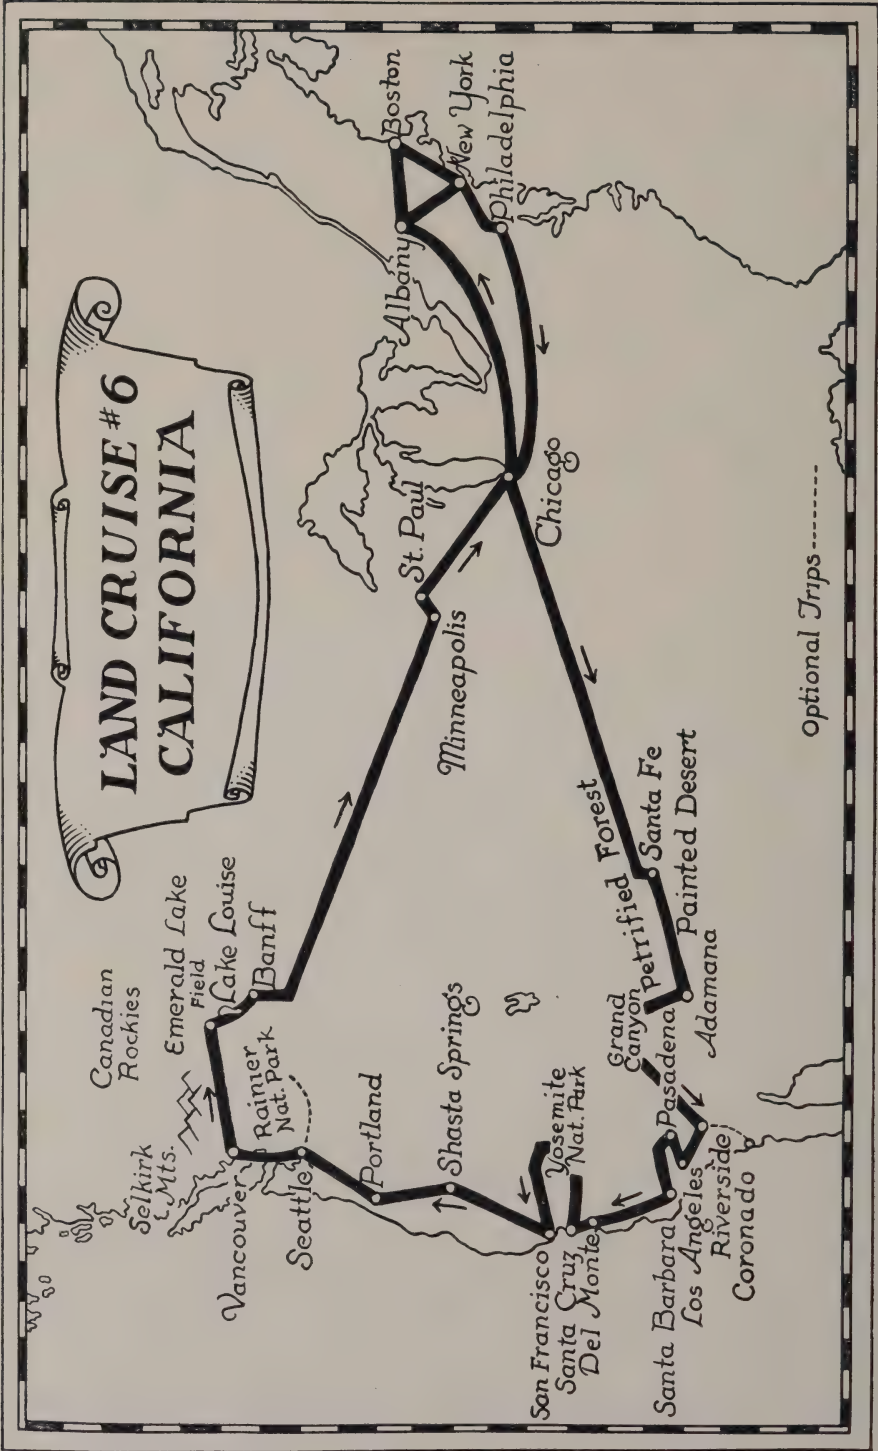 LAND CRUISE #6
CALIFORNIA
Canadian
Rockies
Selkirk
Mts.
Emerald Lake
Field
Lake Louise
Banff
Vancouver
Rainier
Nat. Park
Seattle
Portland
Shasta Springs
Yosemite
Nat. Park
San Francisco
Santa Cruz
Del Monte
Santa Barbara
Los Angeles
Riverside
Coronado
Pasadena
Grand
Canyon
Petrified Forest
Adamana
Painted Desert
Santa Fe
Minneapolis
St. Paul
Chicago
Albany
Boston
New York
Philadelphia
Optional Trips--------